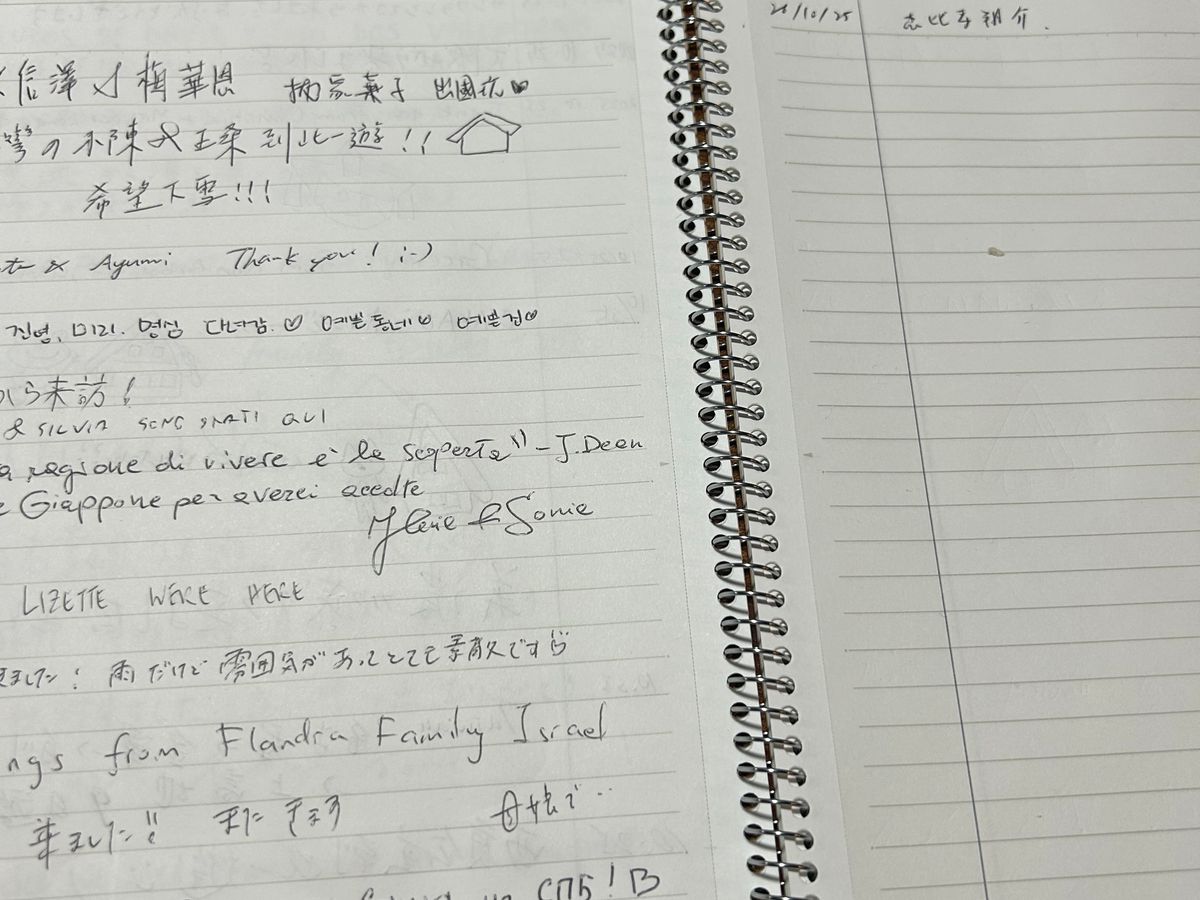 信澤 梅華恩 菓子 出國玩♥
陳 到此一遊!!
希望下雪!!!
& Ayumi Thank you! :-)
진영, 미리. 명심 다녀감.♡ 예쁜동네♡ 예쁜집♡
から来訪!
& SILVIA SONO STATI QUI
ragione di vivere è la scoperta" - J. Dean
Giappone per averci accolte
& Sonia
LIZETTE WERE HERE
ました! 雨だけど雰囲気があってとても素敵です
ngs from Flandra Family Israel
来ました!! また きます 母娘で..
СПБ! В
25/10/25